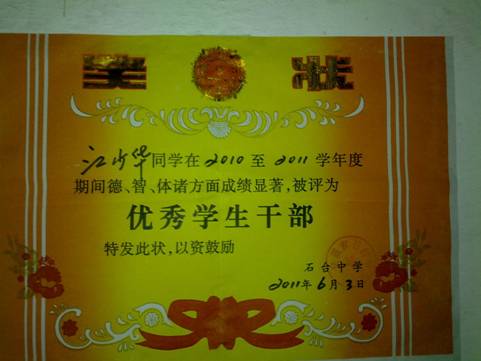 奖状
江少华同学在2010至2011学年度
期间德、智、体诸方面成绩显著,被评为
优秀学生干部
特发此状,以资鼓励
石台中学
2011年6月3日